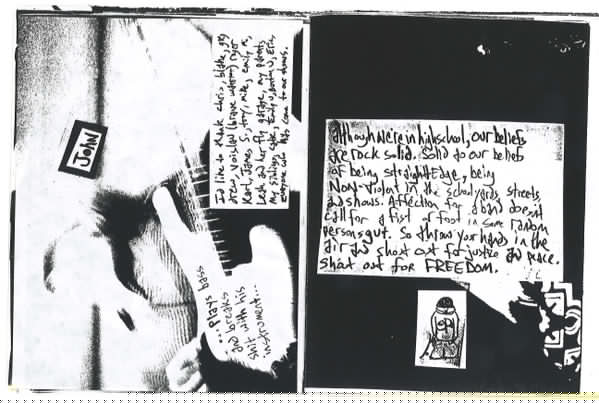 JOHN
I'd like to thank chris, blake, gregg
drew, voislav (brave whom)
Karl, James S., tony, mike, emily R,
Leah and her fly garage, my parents,
everyone who has come to our shows.
...Plays bass
and breaks
shit with his
instrument...
although we're in high school, our beliefs
are rock solid. Solid to our beliefs
of being straightEdge, being
NON-violent in the schoolyards, streets,
and shows. Affection for a band doesn't
call for a fist or foot in some random
persons gut. So throw your hands in the
air and shout out for justice and peace.
shout out for FREEDOM.